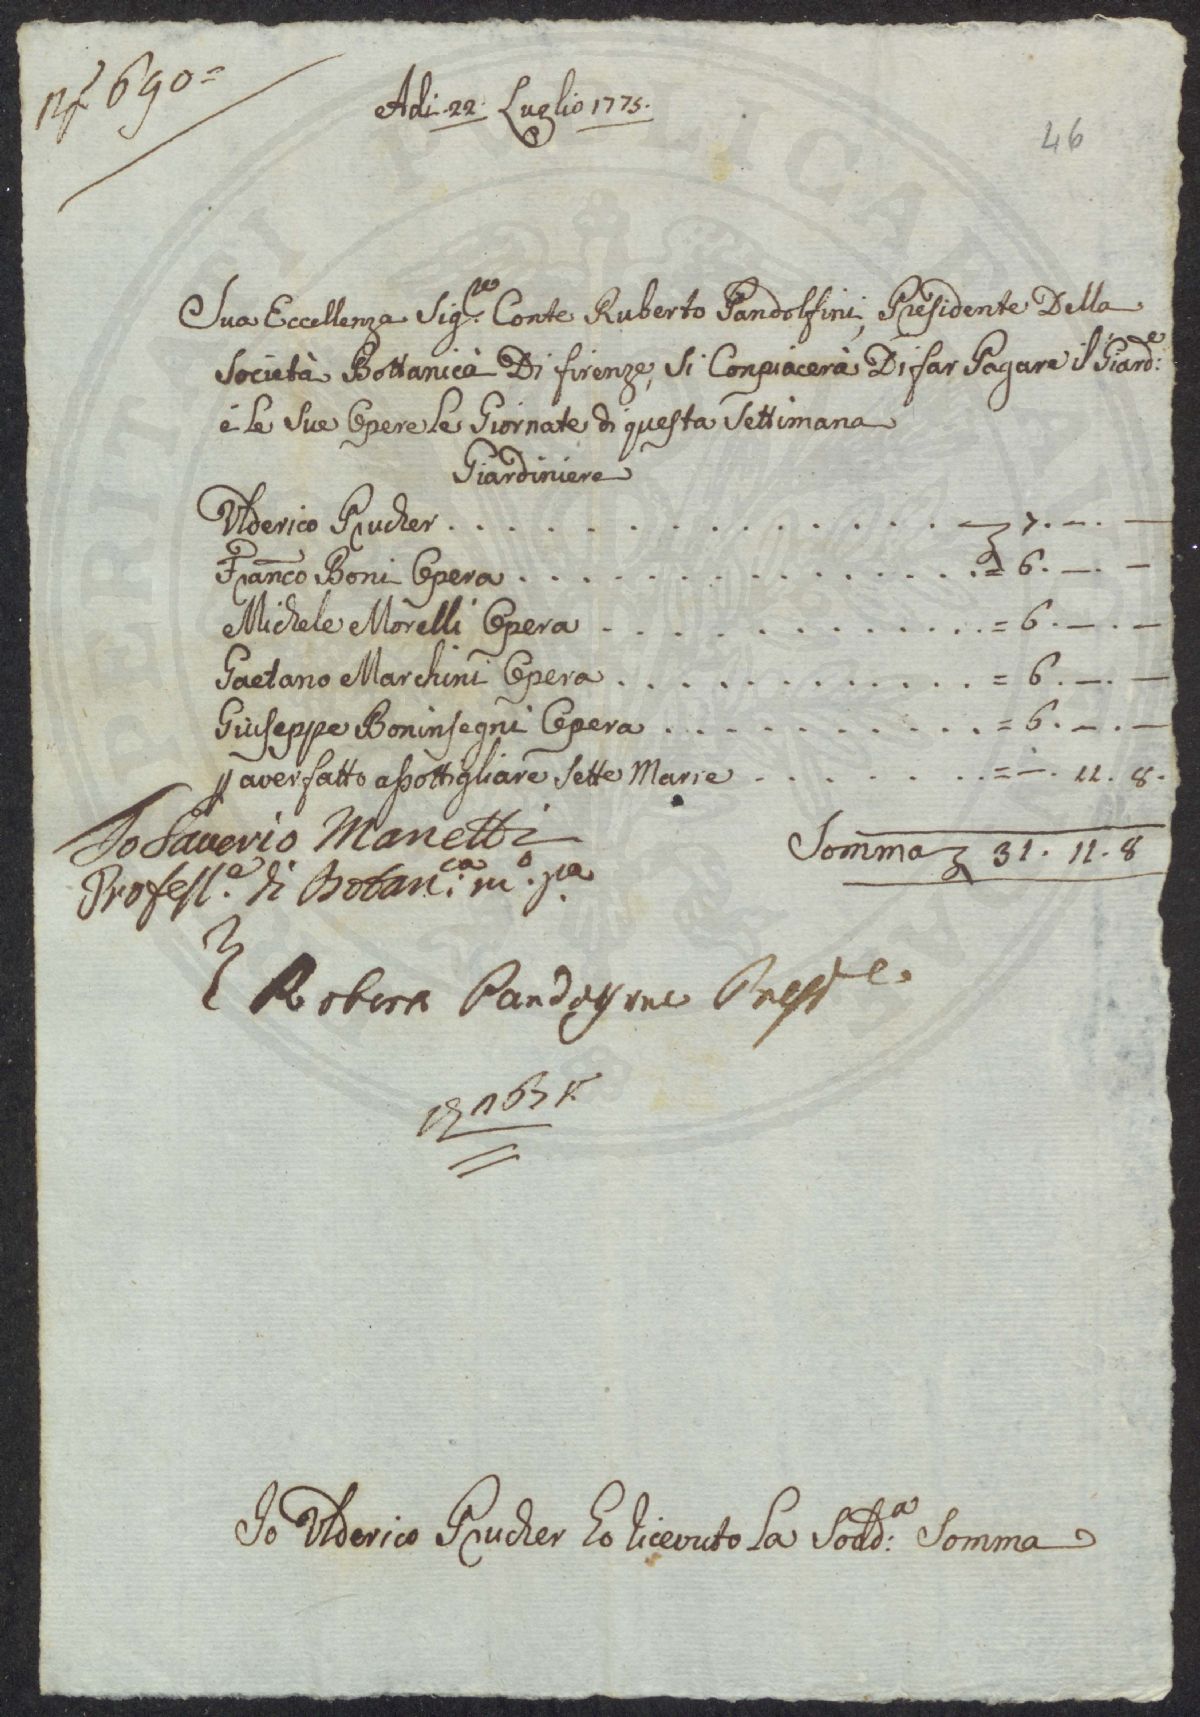 N 690=
Adi 22. Luglio 1775.
46
Sua Eccellenza Sig.re Conte Ruberto Pandolfini, Presidente Della
Società Bottanica Di firenze, Si Conpiacerà Di far Pagare il Giard:e
è le Sue Opere le Giornate di questa Settimana
Giardiniere
Ulderico Prucher . . . . . . . . . . . . . . . 7. —. —
Fran.co Boni Opera . . . . . . . . . . . . . . = 6. —. —
Michele Morelli Opera . . . . . . . . . . . . = 6. —. —
Gaetano Marchini Opera . . . . . . . . . . . = 6. —. —
Giuseppe Boninsegni Opera . . . . . . . . . . = 6. —. —
p aver fatto assottigliare Sette Marre . . . . . . = —. 11. 8.
Somma 31. 11. 8
Io Saverio Manetti
Profess.e di Botan:ca m.o p.a
Pand
Io Ulderico Prucher ho ricevuto la Sodd:a Somma
PERITVRAE